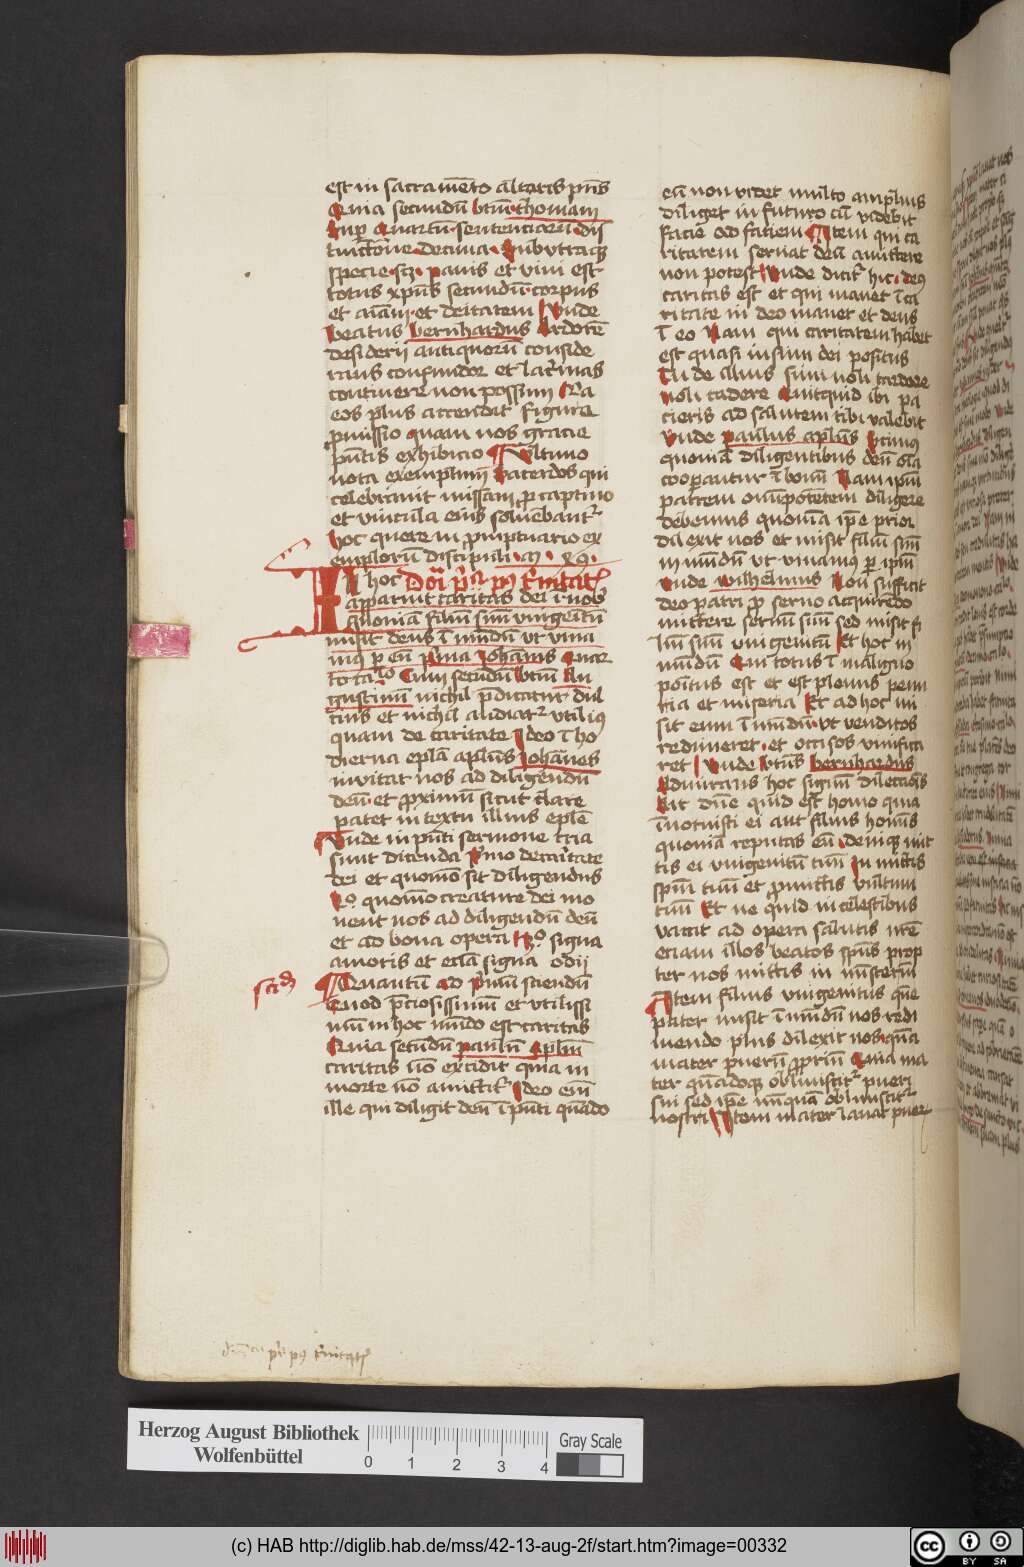 est in sacramento altaris pn̄s
Quia secundū btm̄ thomam
sup̱ Quartū sententiarū dis
tinctione decima Sub utraq̄
specie sz̄ panis et vini est
totus xpūs secundū corpus
et aīam et deitatem Unde
beatus bernhardus Ardorē
desiderii antiquorū conside
rans confundor et lac̄rimas
continere non possum Na
eos plus accendit figure
pmissio quam nos gracie
pn̄tis exhibicio Ultimo
nota exemplum Sacerdos qui
celebravit missam p̱ captivo
et vincula eius solvebant᷑
hoc quere in promptuario ex
emplorū discipuli m 29
In hoc Doīca pᵃ pꝰ trinitatē
apparuit caritas dei ī nobꝭ
quoniā filiū suū unigenitū
misit deus ī mūdū ut viva
mꝰ p̱ eū Prima Johanis Quar
to ca.ᵗᵒ Cum secundū btm̄ Au
gustinū nichil predicatur dul
cius et nichil audiat᷑ utiliꝰ
quam de caritate Ideo ī ho
dierna epl̄a apl̄us Johānes
invitat nos ad diligendū
deū et proximū sicut clare
patet in textu illius epl̄e
Unde in pn̄ti sermone tria
sunt dicenda Primo de caritate
dei et quomō sit diligendus
2ᵒ quomō creature dei mo
nent nos ad diligendū deū
et ad bona opera 3ᵒ signa
amoris et eciā signa odii
scd̄m
Quantū ad primū sciendū
Quod preciosissimū et utilissi
mū in hoc mūdo est caritas
Quia secūdū paulū Apl̄m
caritas nō excidit quia in
morte nō amittit᷑ Ideo em̄
ille qui diligit deū ī pn̄ti quādo
eū non videt multo amplius
diliget in futuro cū videbit
facie ad faciem Item qui ca
ritatem servat deū amittere
non potest Unde dicit᷑ hic deꝰ
caritas est et qui manet ī ca
ritate in deo manet et deus
ī eo Nam qui caritatem habet
est quasi in sinu dei positus
Tu de illius sinu noli recedere
noli cadere Quitquid ibi pa
cieris ad salutem tibi valebit
Unde paulus apl̄us Scimus
quoniā diligentibus deū oīa
cooperantur ī bonū Nam ipm̄
patrem omīpotētem diligere
debemus quoniā ip̄e prior
dilexit nos et misit filiū suū
in mūdū ut vivamus p̱ ipm̄
Unde wilhelmus Non sufficit
deo patri pro servo acquirēdo
mittere servū suū sed misit fi
liū suū unigenitū Et hoc in
mūdū Qui totus ī maligno
pōitus est et est plenus penu
ria et miseria Et ad hoc mi
sit eum ī mūdū ut venditos
redimeret et occisos vivifica
ret Unde btūs bernhardus
Admirans hoc signū dilectiōis
Ait dn̄e quid est homo quia
īnotuisti ei aut filius homīs
quoniā reputas eū deniqꝫ mit
tis ei unigenitū tuū In mittis
spm̄ tuū et promittis vultum
tuū Et ne quid in celestibus
vacet ad opera salutis nr̄e
etiam illos beatos spūs prop
ter nos mittis in mīsteriū
Item filius unigenitus quē
pater misit ī mūdū nos redi
mendo plus dilexit nos quā
mater puerū propriū Quia ma
ter quādoqꝫ obliviscit᷑ pueri
sui sed ip̄e nūquā obliviscit᷑
nostri Item mater lavat puer
pꝰ trinitatē
Herzog August Bibliothek
Wolfenbüttel
0 1 2 3 4
Gray Scale
(c) HAB http://diglib.hab.de/mss/42-13-aug-2f/start.htm?image=00332
cc
BY SA